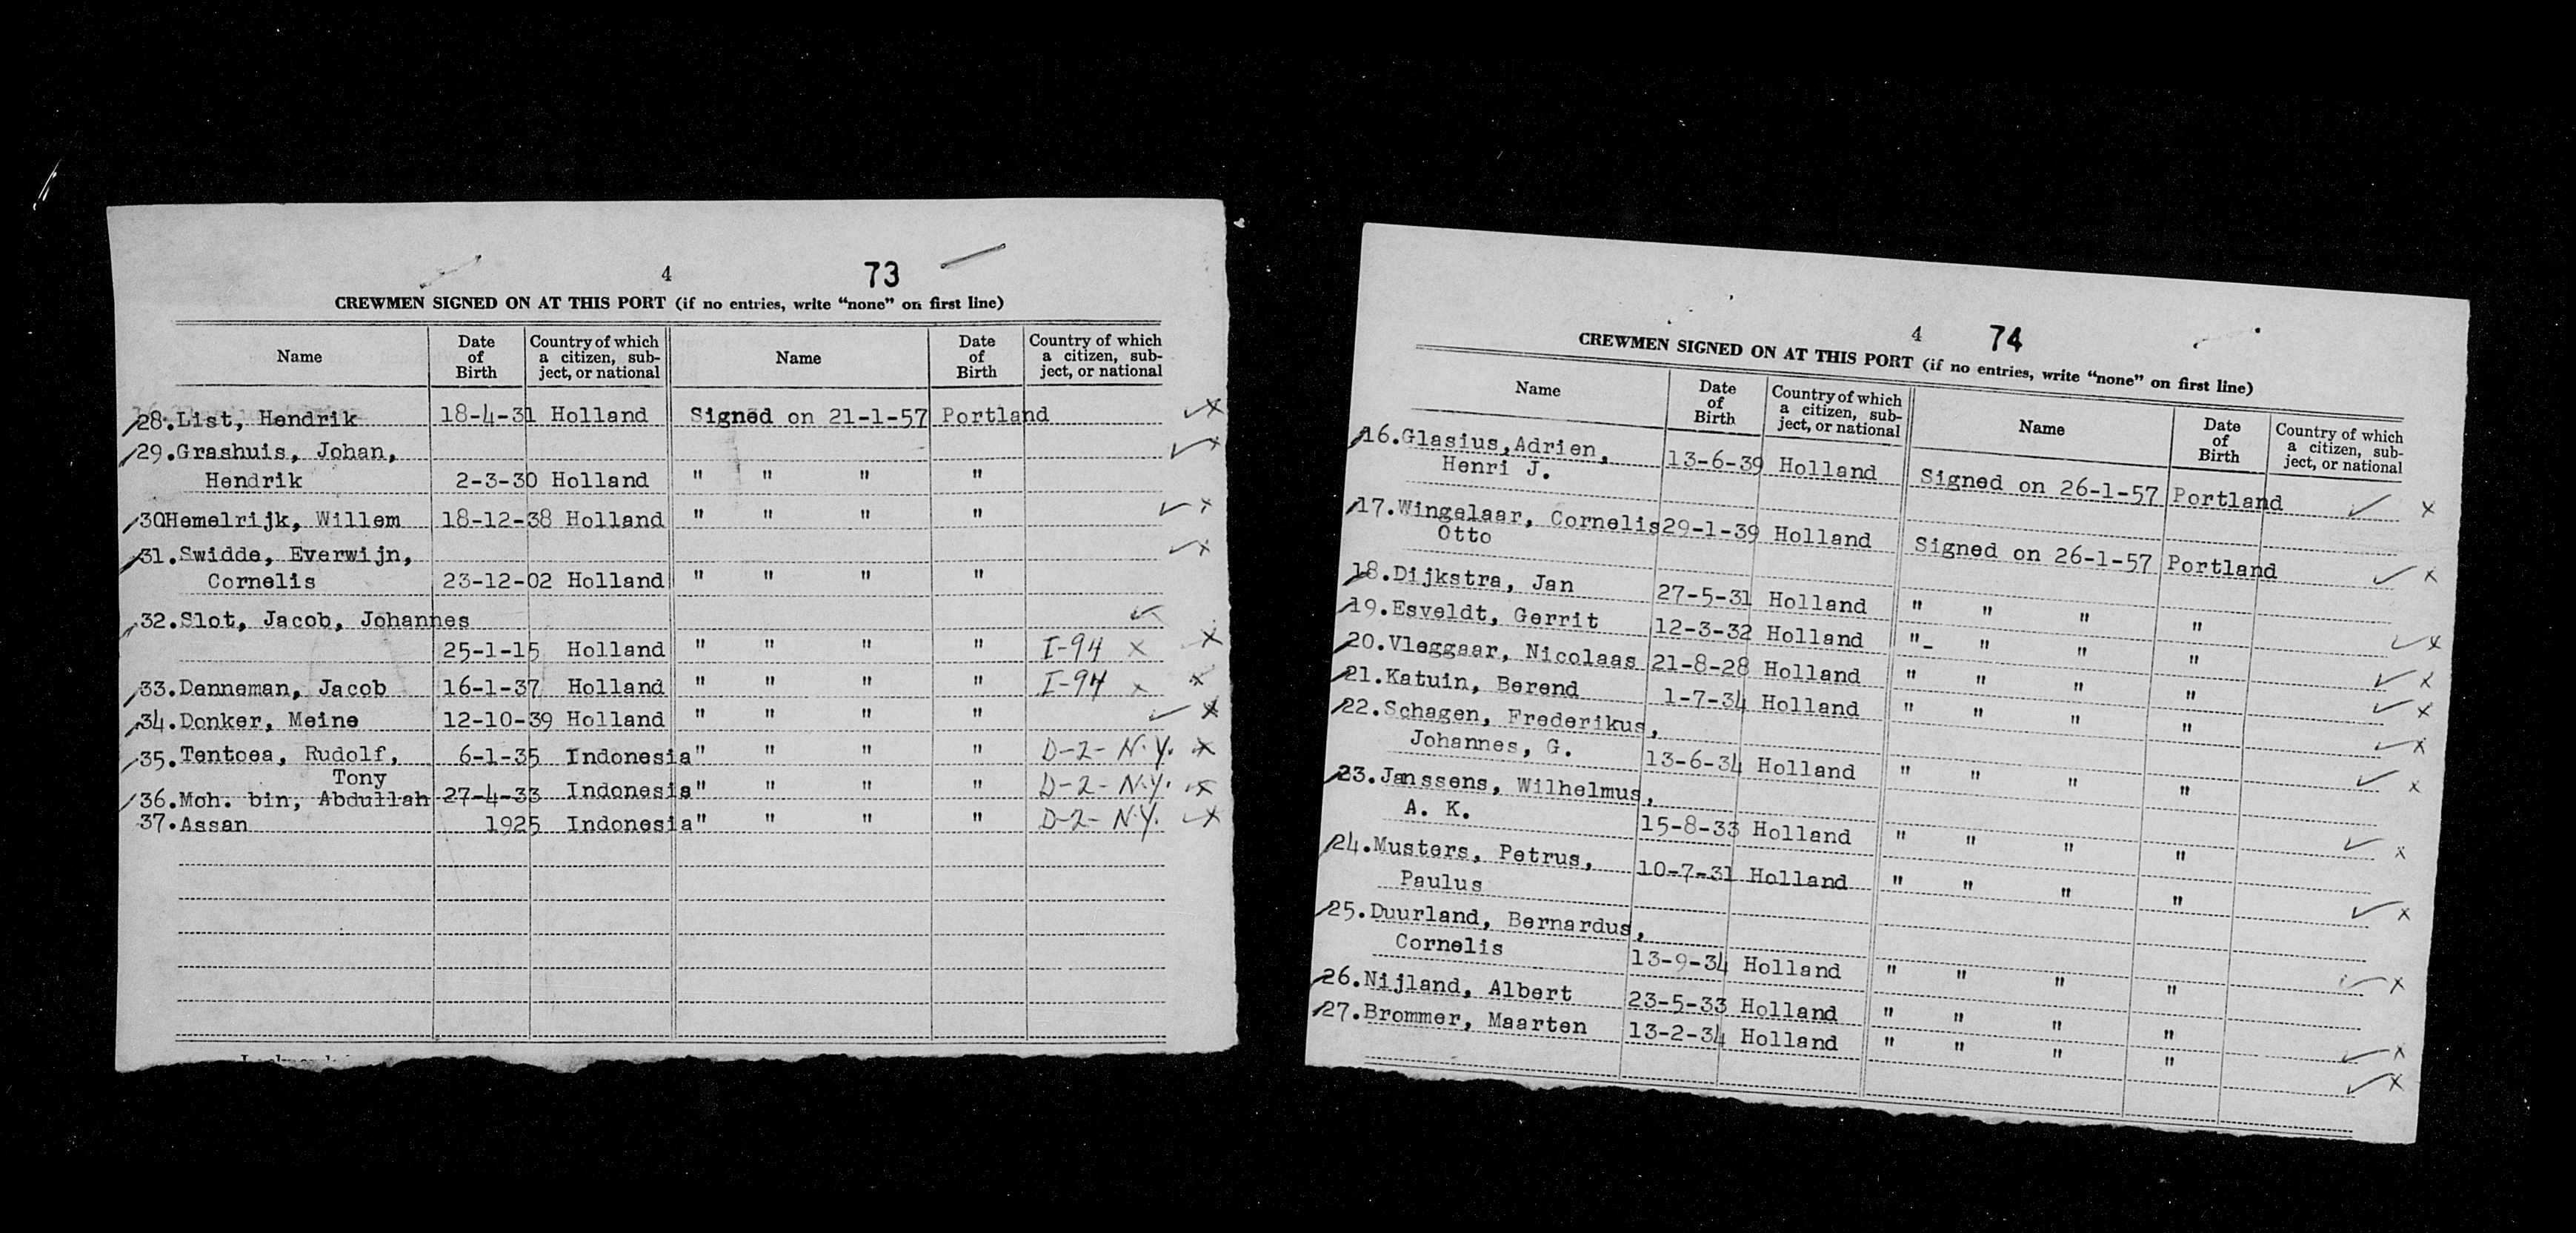 4 73
CREWMEN SIGNED ON AT THIS PORT (if no entries, write "none" on first line)
Name Date of Birth Country of which a citizen, subject, or national Name Date of Birth Country of which a citizen, subject, or national
28. List, Hendrik 18-4-31 Holland Signed on 21-1-57 Portland
29. Grashuis, Johan,
Hendrik 2-3-30 Holland " " " "
30 Hemelrijk, Willem 18-12-38 Holland " " " "
31. Swidde, Everwijn,
Cornelis 23-12-02 Holland " " " "
32. Slot, Jacob, Johannes
25-1-15 Holland " " " " I-94 x
33. Denneman, Jacob 16-1-37 Holland " " " " I-94 x
34. Donker, Meine 12-10-39 Holland " " " "
35. Tentoea, Rudolf, 6-1-35 Indonesia " " " " D-2- N.Y.
Tony
36. Moh. bin, Abdullah 27-4-33 Indonesia " " " " D-2- N.Y.
37. Assan 1925 Indonesia " " " " D-2- N.Y.
4 74
CREWMEN SIGNED ON AT THIS PORT (if no entries, write "none" on first line)
Name Date of Birth Country of which a citizen, subject, or national Name Date of Birth Country of which a citizen, subject, or national
16. Glasius, Adrien, 13-6-39 Holland Signed on 26-1-57 Portland
Henri J.
17. Wingelaar, Cornelis 29-1-39 Holland Signed on 26-1-57 Portland
Otto
18. Dijkstra, Jan 27-5-31 Holland " " " "
19. Esveldt, Gerrit 12-3-32 Holland "- " " "
20. Vleggaar, Nicolaas 21-8-28 Holland " " " "
21. Katuin, Berend 1-7-34 Holland " " " "
22. Schagen, Frederikus,
Johannes, G. 13-6-34 Holland " " " "
23. Janssens, Wilhelmus,
A. K. 15-8-33 Holland " " " "
24. Musters, Petrus, 10-7-31 Holland " " " "
Paulus
25. Duurland, Bernardus,
Cornelis 13-9-34 Holland " " " "
26. Nijland, Albert 23-5-33 Holland " " " "
27. Brommer, Maarten 13-2-34 Holland " " " "